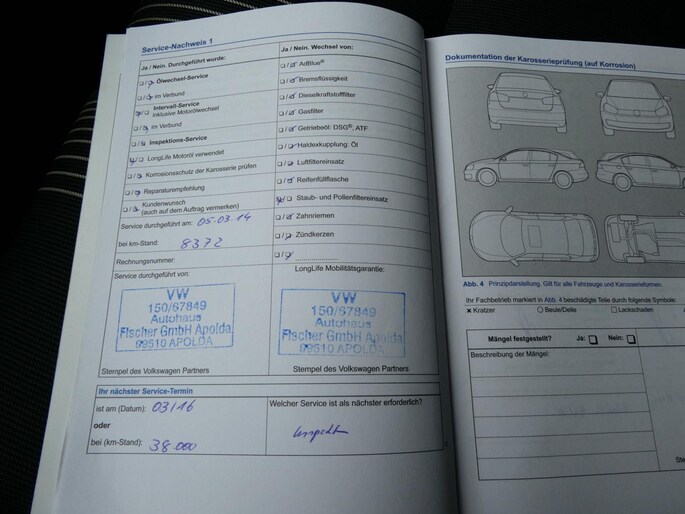 Service-Nachweis 1
Ja / Nein. Durchgeführt wurde:
Ölwechsel-Service
im Verbund
Intervall-Service
inklusive Motorölwechsel
im Verbund
Inspektions-Service
LongLife Motoröl verwendet
Korrosionsschutz der Karosserie prüfen
Reparaturempfehlung
Kundenwunsch
(auch auf dem Auftrag vermerken)
Service durchgeführt am: 05.03.14
bei km-Stand: 8372
Rechnungsnummer:
Service durchgeführt von:
VW
150/67849
Autohaus
Fischer GmbH Apolda
99510 APOLDA
Stempel des Volkswagen Partners
Ja / Nein. Wechsel von:
AdBlue®
Bremsflüssigkeit
Dieselkraftstofffilter
Gasfilter
Getriebeöl: DSG®, ATF
Haldexkupplung: Öl
Luftfiltereinsatz
Reifenfüllflasche
Staub- und Pollenfiltereinsatz
Zahnriemen
Zündkerzen
LongLife Mobilitätsgarantie:
VW
150/67849
Autohaus
Fischer GmbH Apolda
99510 APOLDA
Stempel des Volkswagen Partners
Ihr nächster Service-Termin
ist am (Datum): 03/16
oder
bei (km-Stand): 38.000
Welcher Service ist als nächster erforderlich?
Dokumentation der Karosserieprüfung (auf Korrosion)
Abb. 4 Prinzipdarstellung. Gilt für alle Fahrzeuge und Karosserieformen.
Ihr Fachbetrieb markiert in Abb. 4 beschädigte Teile durch folgende Symbole:
x Kratzer
Beule/Delle
Lackschaden
Mängel festgestellt? Ja: Nein:
Beschreibung der Mängel: